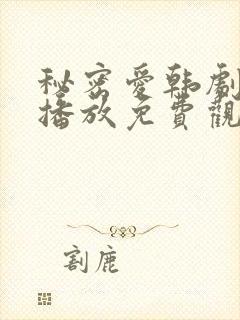 秘密愛韩劇
播放免費觀
割鹿